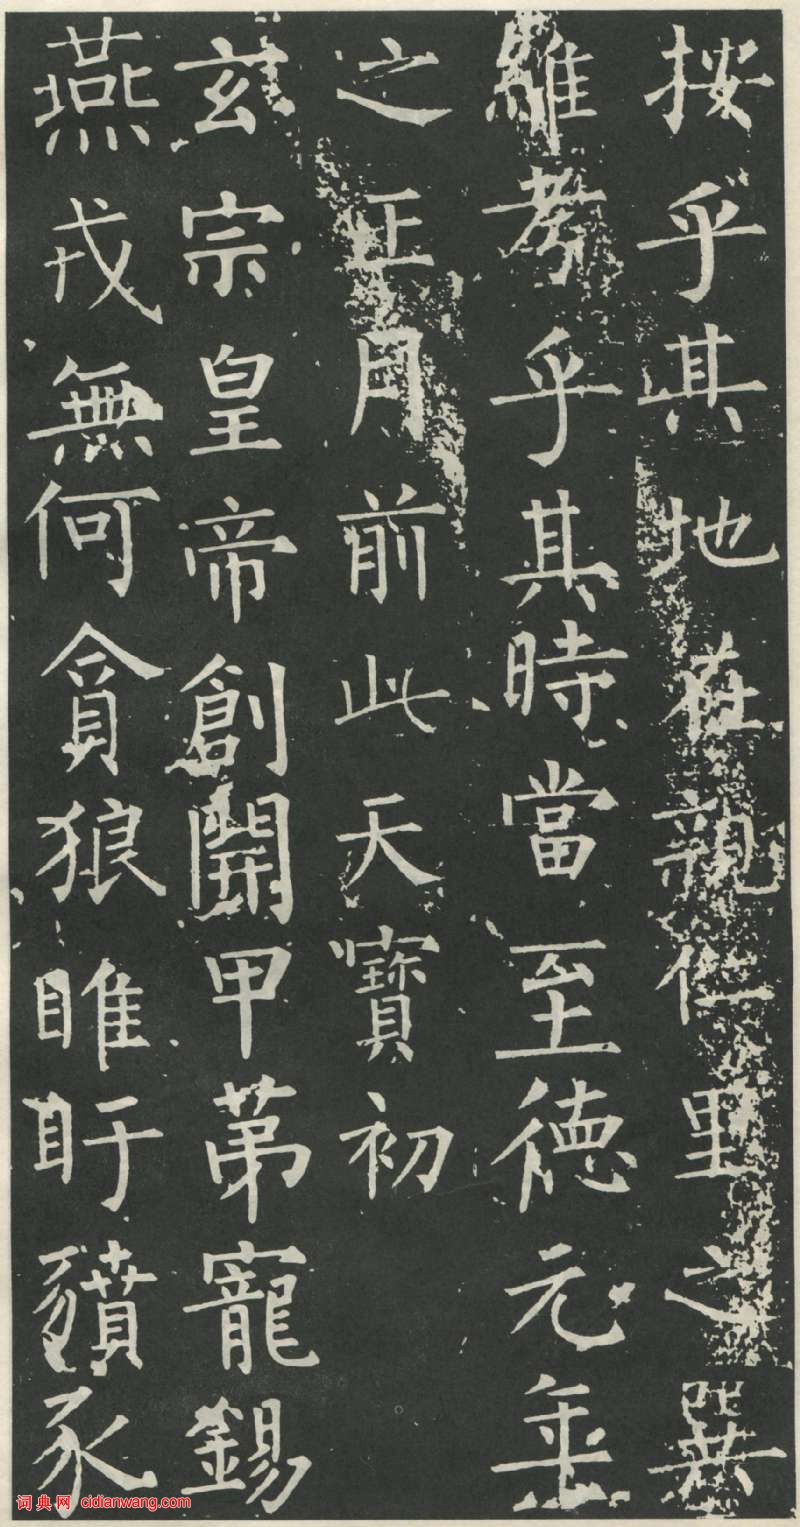 按乎其地在親仁里之巽
維考乎其時當至德元年
之正月前此天寶初
玄宗皇帝創開甲苐寵錫
燕戎無何貪狼睢盱豶豕
词典网 cidianwang.com